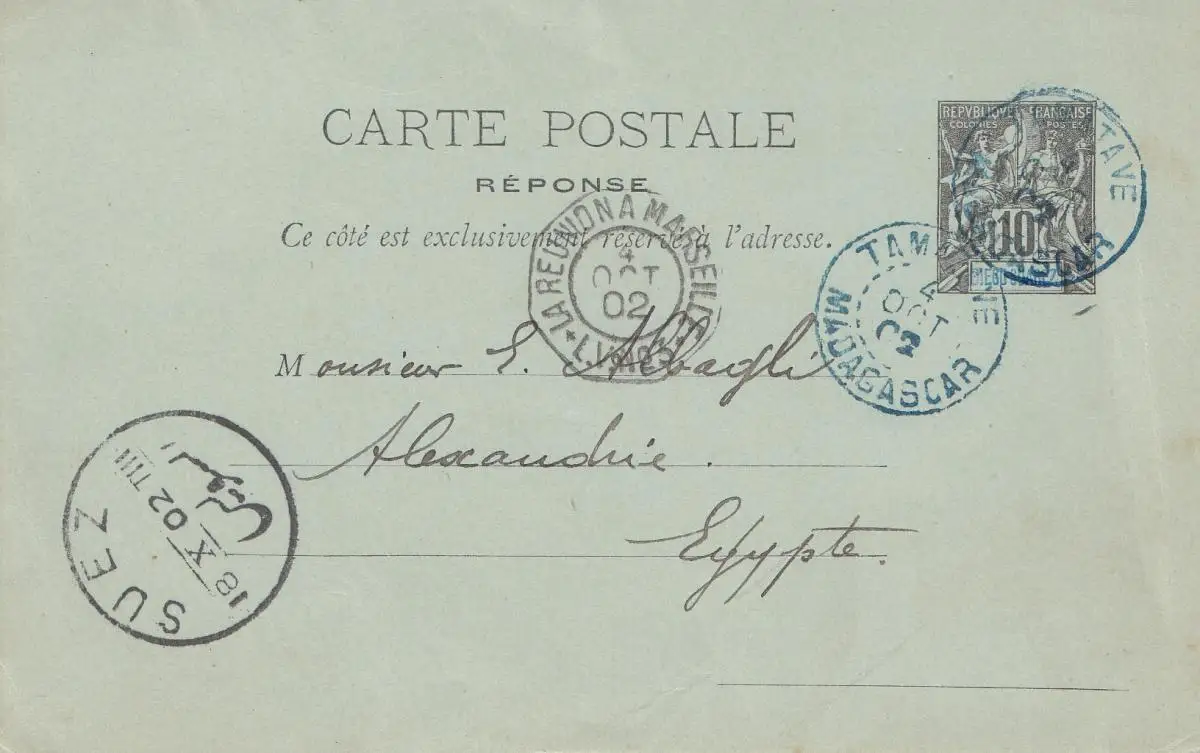 CARTE POSTALE
RÉPONSE
Ce côté est exclusivement réservé à l'adresse.
REPVBLIQVE FRANÇAISE
COLONIES POSTES
10
TAMATAVE
MADAGASCAR
LA REUNION A MARSEILLE
4
OCT
02
TAMATAVE
4
OCT
02
MADAGASCAR
Monsieur E. Albagli
Alexandrie.
Egypte.
SUEZ
18 X 02 T III
السويس